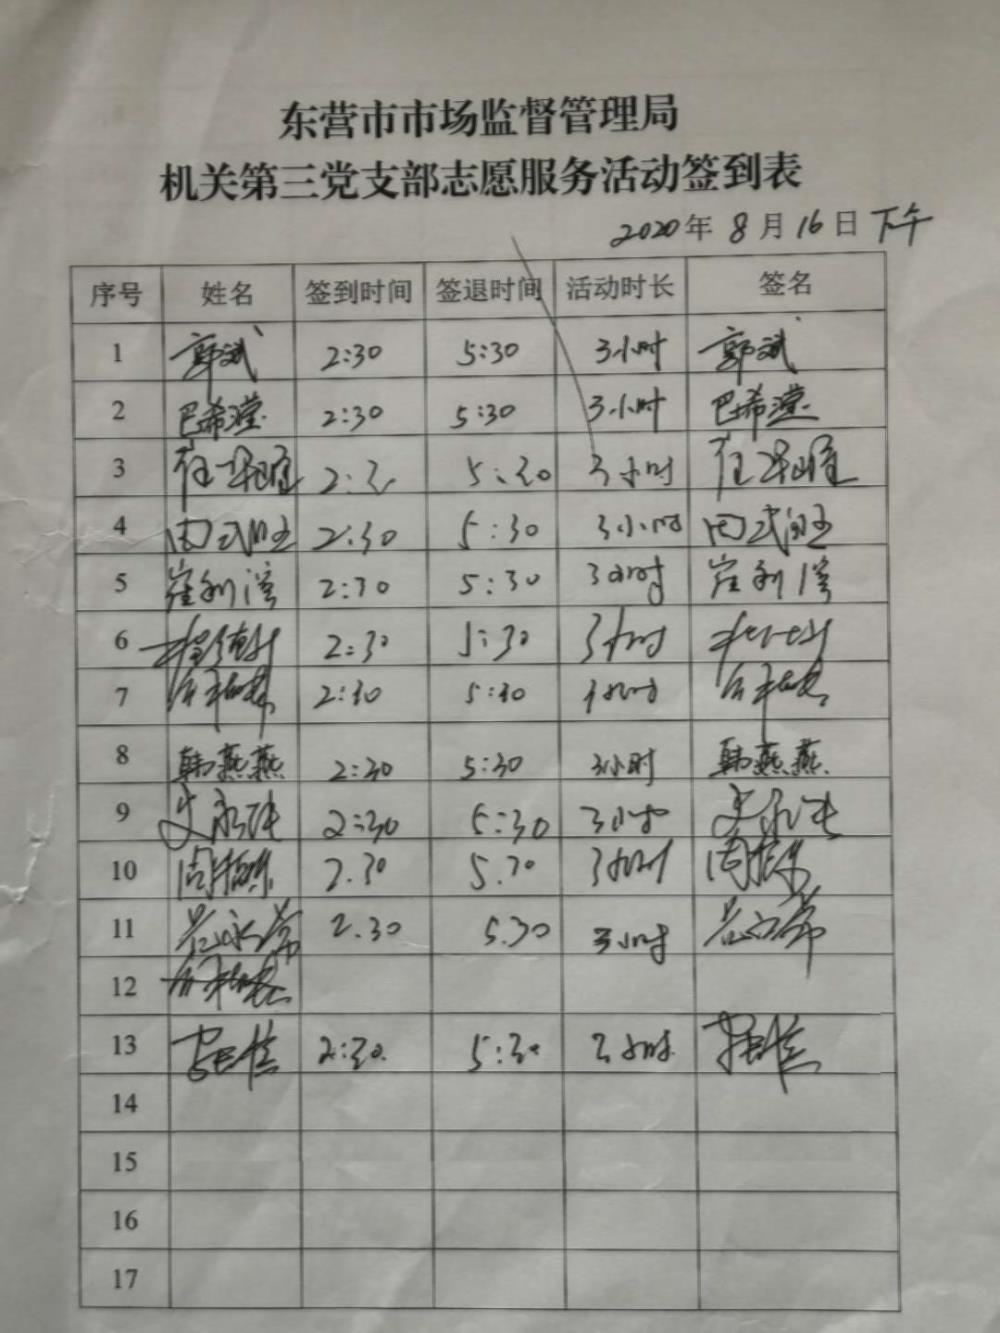 东营市市场监督管理局
机关第三党支部志愿服务活动签到表
2020年 8月16日 下午
序号 姓名 签到时间 签退时间 活动时长 签名
1 郭斌 2:30 5:30 3小时 郭斌
2 巴希滢 2:30 5:30 3小时 巴希滢
3 2:30 5:30 3小时
4 2:30 5:30 3小时
5 2:30 5:30 3小时
6 2:30 5:30 3小时
7 2:30 5:30 3小时
8 韩燕燕 2:30 5:30 3小时 韩燕燕
9 2:30 5:30 3小时
10 2.30 5.30 3小时
11 2.30 5.30 3小时
12
13 2:30. 5:30 3小时
14
15
16
17